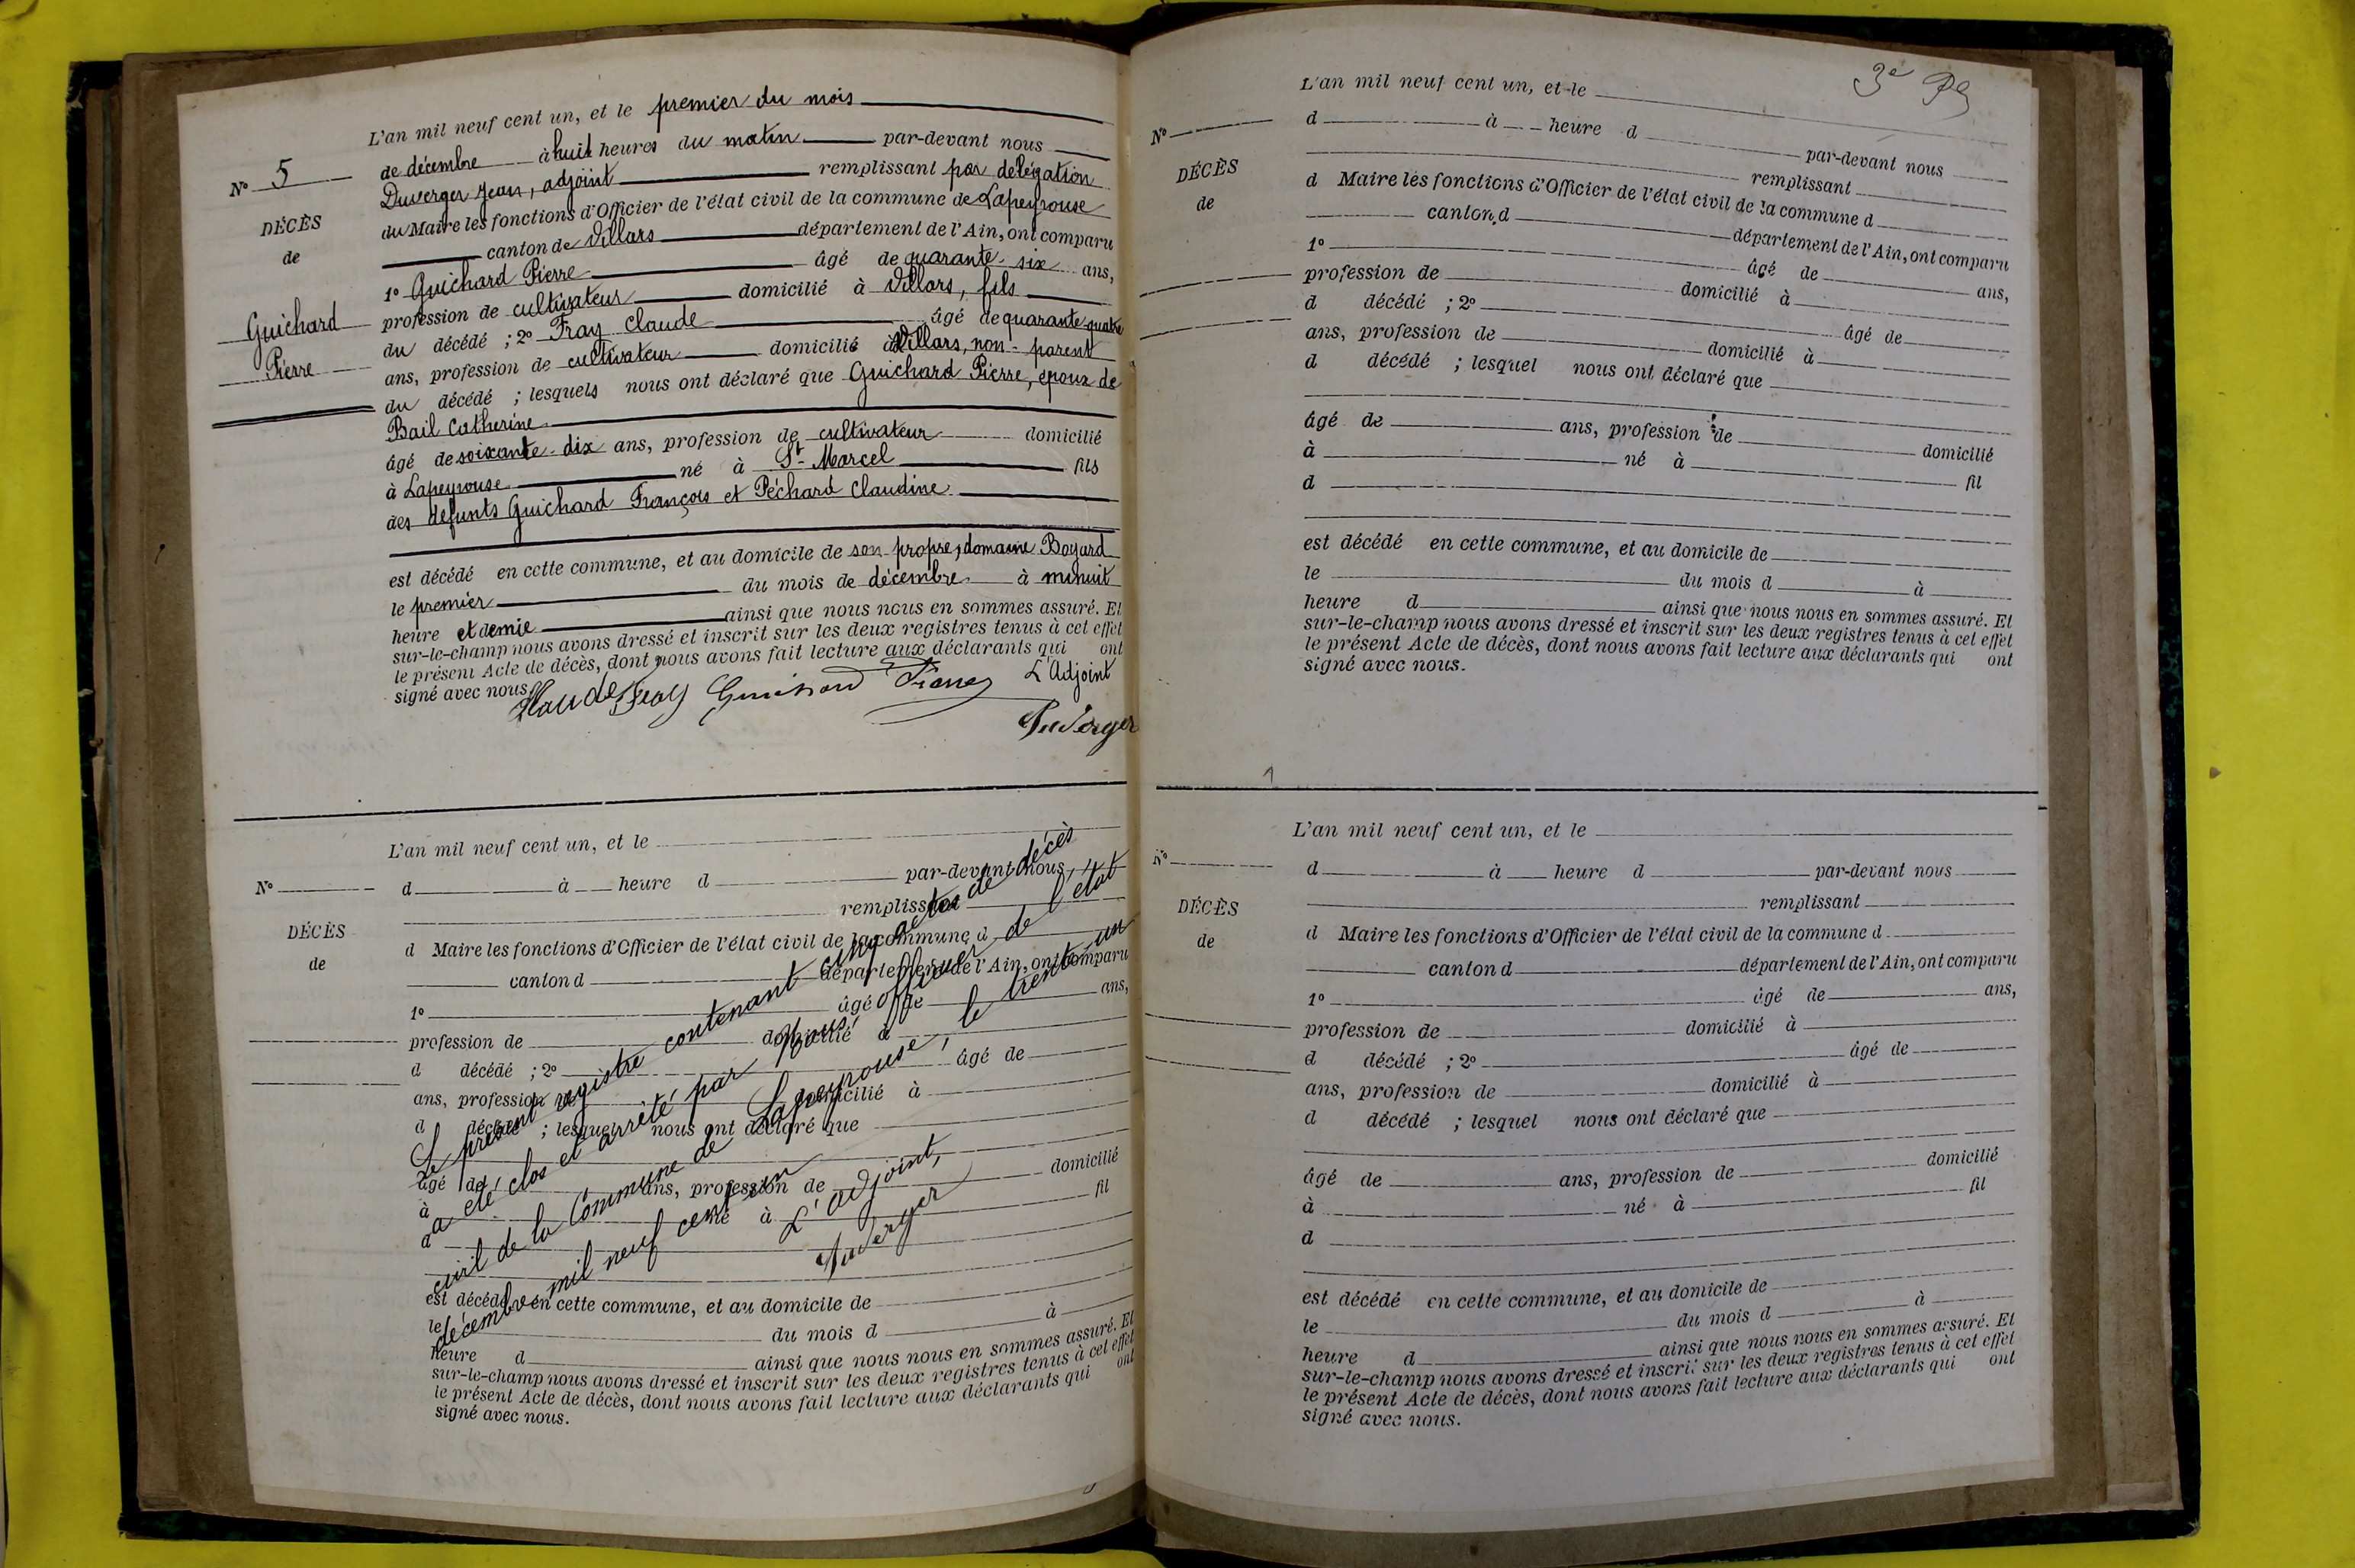 L'an mil neuf cent un, et le premier du mois
de décembre à huit heures du matin par-devant nous
Duverger Jean, adjoint remplissant par délégation
du Maire les fonctions d'Officier de l'état civil de la commune de Lapeyrouse
canton de Villars département de l'Ain, ont comparu
1º Guichard Pierre âgé de quarante-six ans,
profession de cultivateur domicilié à Villars, fils
du décédé ; 2º Fray Claude âgé de quarante quatre
ans, profession de cultivateur domicilié à Villars, non-parent
du décédé ; lesquels nous ont déclaré que Guichard Pierre, époux de
Bail Catherine
âgé de soixante-dix ans, profession de cultivateur domicilié
à Lapeyrouse né à St-Marcel fils
des défunts Guichard François et Péchard Claudine
est décédé en cette commune, et au domicile de son propre, domaine Boyard
le premier du mois de décembre à minuit
heure et demie ainsi que nous nous en sommes assuré. Et
sur-le-champ nous avons dressé et inscrit sur les deux registres tenus à cet effet
le présent Acte de décès, dont nous avons fait lecture aux déclarants qui ont
signé avec nous.
L'Adjoint
Duverger
Nº 5
DÉCÈS
de
Guichard
Pierre
L'an mil neuf cent un, et le
d à heure d par-devant nous
remplissant
d Maire les fonctions d'Officier de l'état civil de la commune d
canton d département de l'Ain, ont comparu
1º âgé de ans,
profession de domicilié à
d décédé ; 2º âgé de
ans, profession de domicilié à
d décédé ; lesquel nous ont déclaré que
âgé de ans, profession de domicilié
à né à fil
d
est décédé en cette commune, et au domicile de
le du mois d à
heure d ainsi que nous nous en sommes assuré. Et
sur-le-champ nous avons dressé et inscrit sur les deux registres tenus à cet effet
le présent Acte de décès, dont nous avons fait lecture aux déclarants qui ont
signé avec nous.
Nº
DÉCÈS
de
Le présent registre contenant cinq actes de décès
a été clos et arrêté par nous officier de l'état
civil de la Commune de Lapeyrouse, le trente-un
décembre mil neuf cent un
L'adjoint,
Duverger
3e
L'an mil neuf cent un, et le
d à heure d par-devant nous
remplissant
d Maire les fonctions d'Officier de l'état civil de la commune d
canton d département de l'Ain, ont comparu
1º âgé de ans,
profession de domicilié à
d décédé ; 2º âgé de
ans, profession de domicilié à
d décédé ; lesquel nous ont déclaré que
âgé de ans, profession de domicilié
à né à fil
d
est décédé en cette commune, et au domicile de
le du mois d à
heure d ainsi que nous nous en sommes assuré. Et
sur-le-champ nous avons dressé et inscrit sur les deux registres tenus à cet effet
le présent Acte de décès, dont nous avons fait lecture aux déclarants qui ont
signé avec nous.
Nº
DÉCÈS
de
L'an mil neuf cent un, et le
d à heure d par-devant nous
remplissant
d Maire les fonctions d'Officier de l'état civil de la commune d
canton d département de l'Ain, ont comparu
1º âgé de ans,
profession de domicilié à
d décédé ; 2º âgé de
ans, profession de domicilié à
d décédé ; lesquel nous ont déclaré que
âgé de ans, profession de domicilié
à né à fil
d
est décédé en cette commune, et au domicile de
le du mois d à
heure d ainsi que nous nous en sommes assuré. Et
sur-le-champ nous avons dressé et inscrit sur les deux registres tenus à cet effet
le présent Acte de décès, dont nous avons fait lecture aux déclarants qui ont
signé avec nous.
Nº
DÉCÈS
de